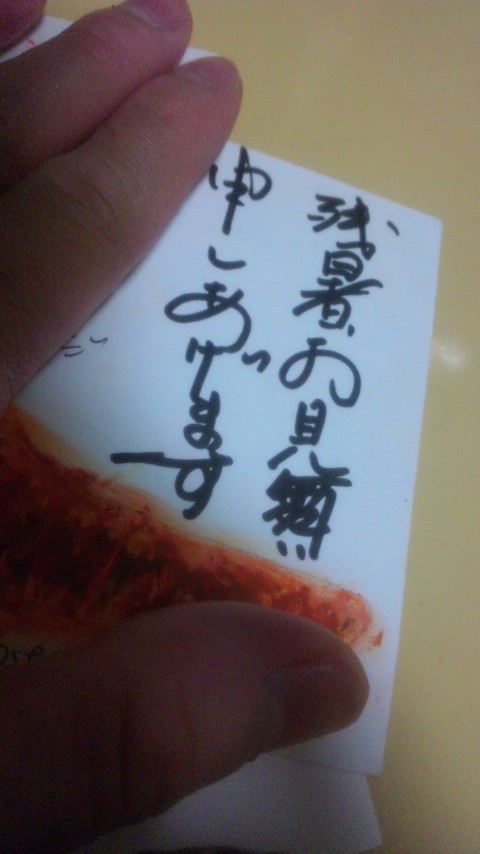 残暑お見舞
申しあげます